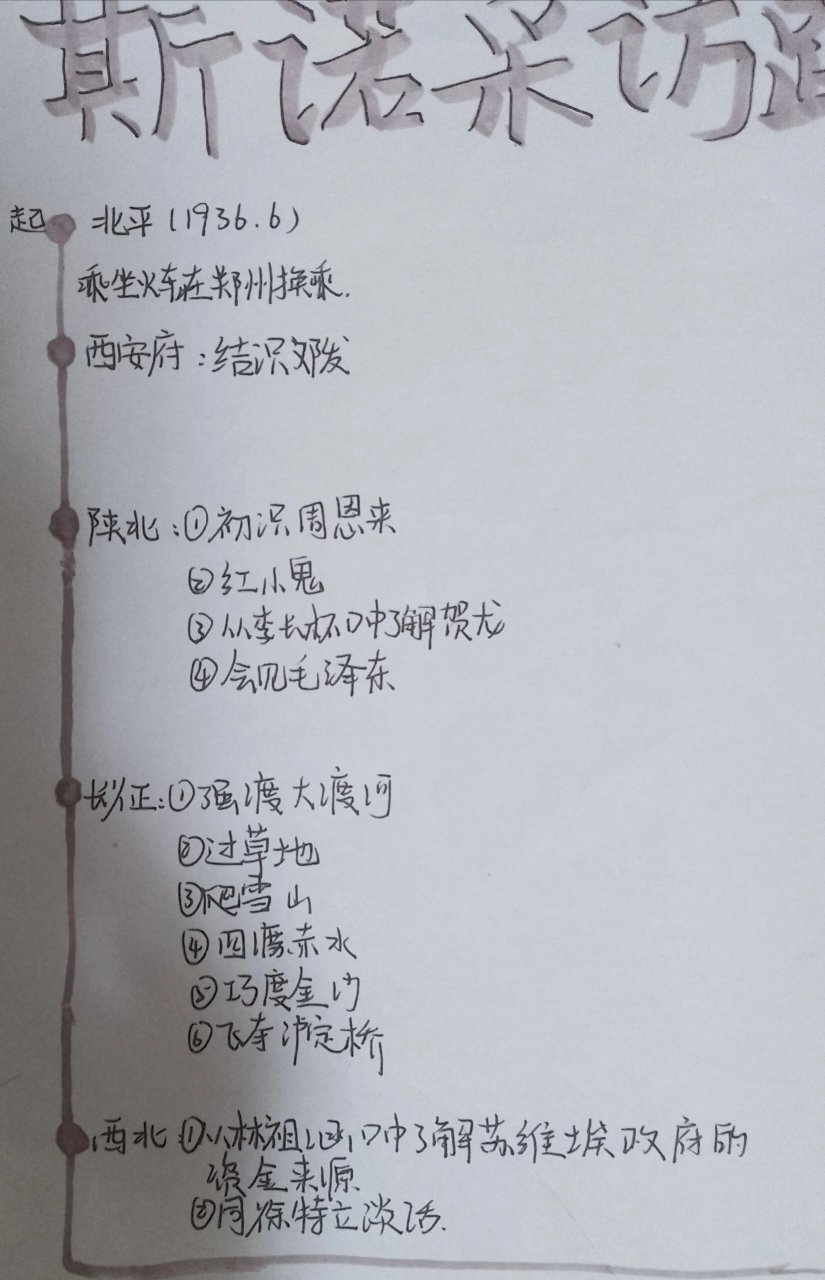 斯诺采访路
起 北平(1936.6)
乘坐火车在郑州换乘.
西安府:结识邓发
陕北:①初识周恩来
②红小鬼
③从李长林口中了解贺龙
④会见毛泽东
长征:①强渡大渡河
②过草地
③爬雪山
④四渡赤水
⑤巧度金沙
⑥飞夺泸定桥
西北①从林祖涵口中了解苏维埃政府的
资金来源
②同徐特立谈话.